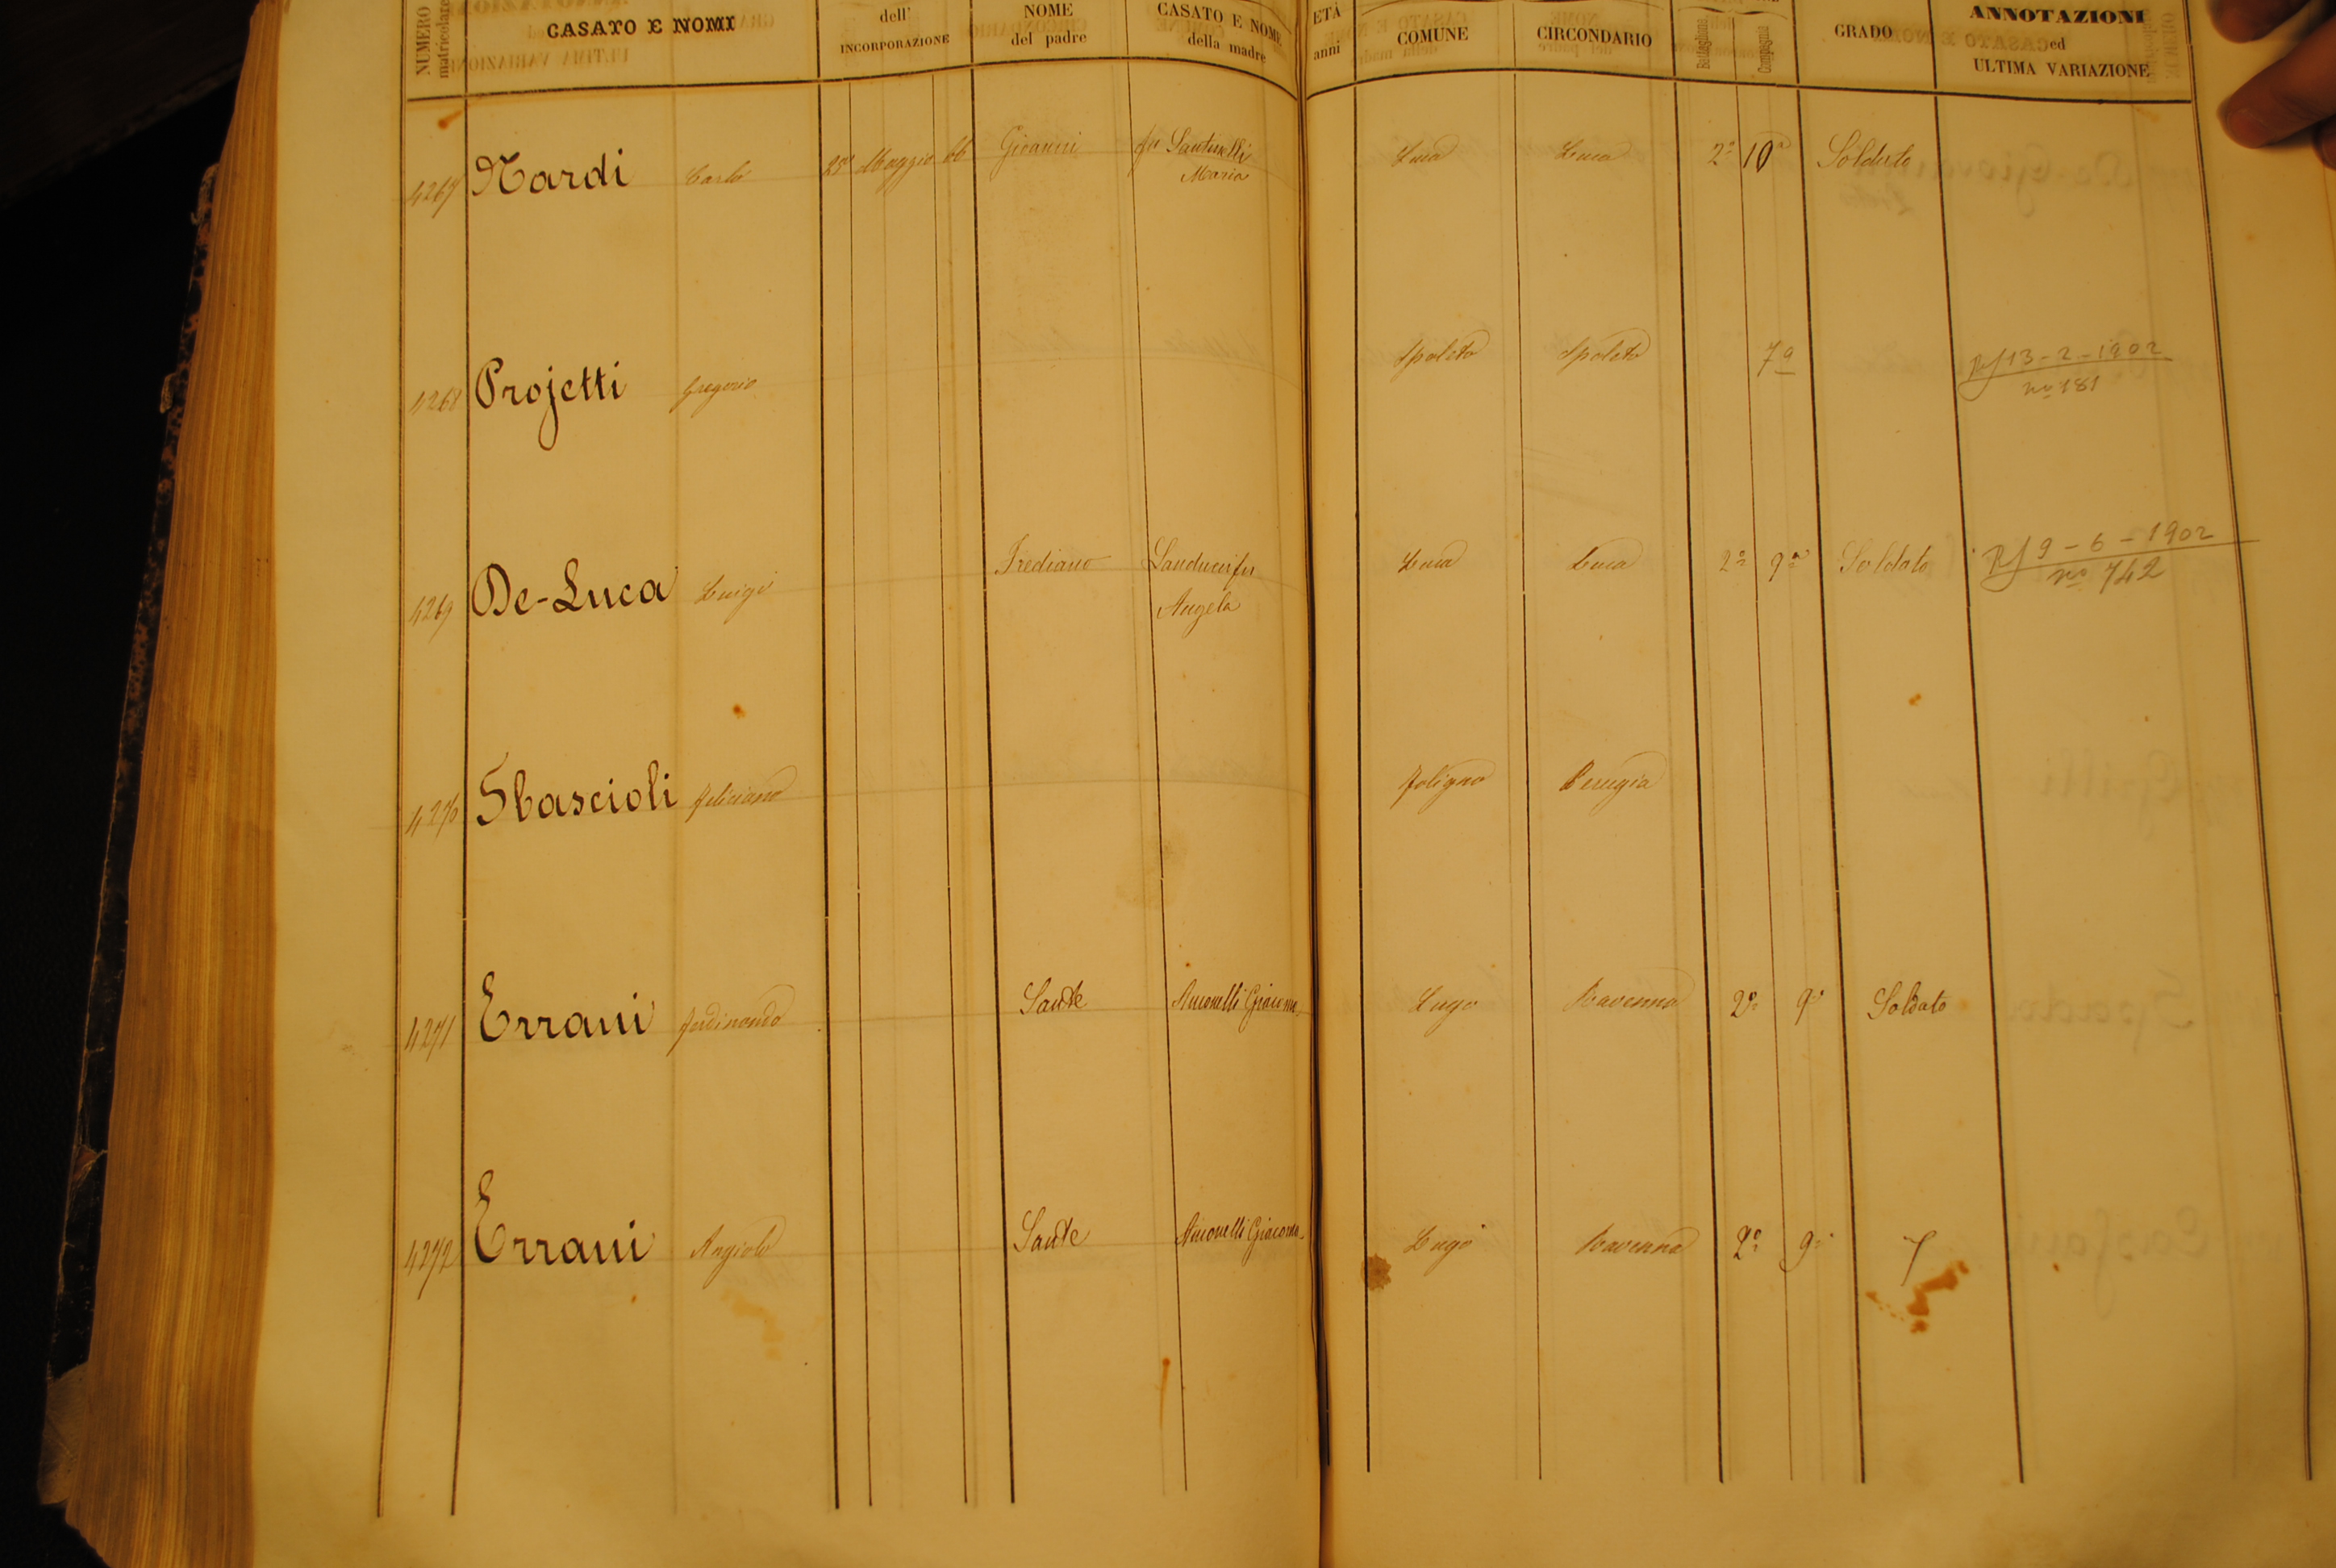 NUMERO matricolare CASATO E NOMI dell' INCORPORAZIONE NOME del padre CASATO E NOME della madre ETÀ anni COMUNE CIRCONDARIO Battaglione Compagnia GRADO ANNOTAZIONI ed ULTIMA VARIAZIONE
4267 Nardi Carlo Maggio 66 Gioanni fu Santinelli Luca Luca 2º 10ª Soldato
Maria
4268 Projetti Gregorio Spoleto Spoleto 7ª Rf 13-2-1902
nº 181
4269 De-Luca Luigi Frediano Landucci fu Luca Luca 2º 9ª Soldato Rf 9-6-1902
Angela nº 742
4270 Sbascioli Feliciano Foligno Perugia
4271 Errani Ferdinando Sante Ancorelli Lugo Ravenna 2º 9ª Soldato
4272 Errani Angiolo Sante Ancorelli Giacoma Lugo Ravenna 2º 9ª